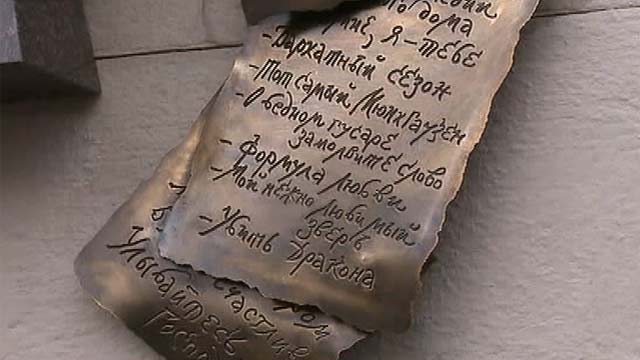 дома
, я - тебе
- Бархатный сезон
- Тот самый Мюнхгаузен
- О бедном гусаре
замолвите слово
- Формула любви
- Мой нежно любимый
зверь
- Убить Дракона
счастлив
Улыбайтесь
Госпо